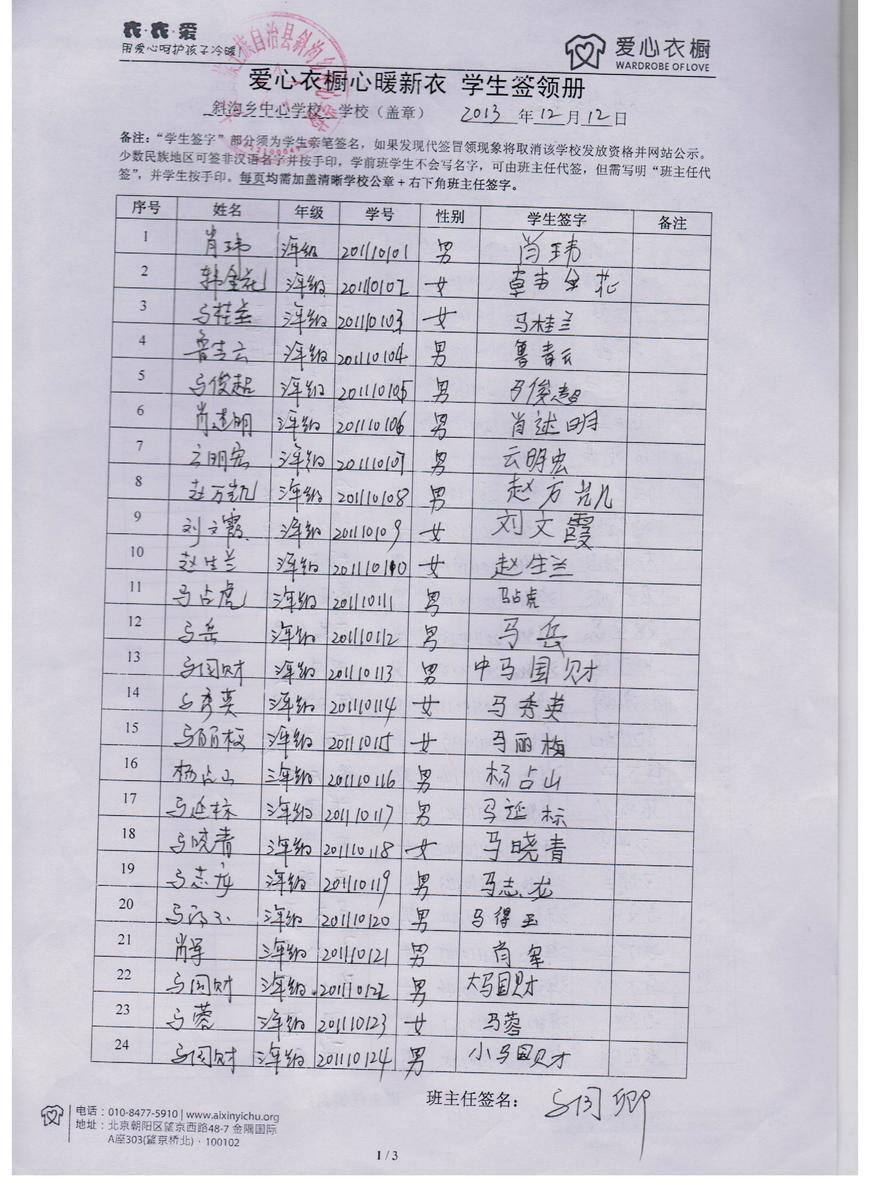 衣·衣·爱
用爱心呵护孩子冷暖!
爱心衣橱
WARDROBE OF LOVE
爱心衣橱心暖新衣 学生签领册
斜沟乡中心学校 学校（盖章） 2013 年 12 月 12 日
备注：“学生签字”部分须为学生亲笔签名，如果发现代签冒领现象将取消该学校发放资格并网站公示。
少数民族地区可签非汉语名字并按手印，学前班学生不会写名字，可由班主任代签，但需写明“班主任代
签”，并学生按手印。每页均需加盖清晰学校公章＋右下角班主任签字。
序号 姓名 年级 学号 性别 学生签字 备注
1 肖玮 三年级 201110101 男 肖玮
2 韩金花 三年级 201110102 女 韩金花
3 马桂兰 三年级 201110103 女 马桂兰
4 鲁青云 三年级 201110104 男 鲁青云
5 马俊超 三年级 201110105 男 马俊超
6 肖述明 三年级 201110106 男 肖述明
7 云明宏 三年级 201110107 男 云明宏
8 赵万凯 三年级 201110108 男 赵万凯
9 刘文霞 三年级 201110109 女 刘文霞
10 赵生兰 三年级 201110110 女 赵生兰
11 马占虎 三年级 201110111 男 马占虎
12 马岳 三年级 201110112 男 马岳
13 马国财 三年级 201110113 男 中马国财
14 马秀英 三年级 201110114 女 马秀英
15 马丽梅 三年级 201110115 女 马丽梅
16 杨占山 三年级 201110116 男 杨占山
17 马延标 三年级 201110117 男 马延标
18 马晓青 三年级 201110118 女 马晓青
19 马志龙 三年级 201110119 男 马志龙
20 马得玉 三年级 201110120 男 马得玉
21 肖军 三年级 201110121 男 肖军
22 马国财 三年级 201110122 男 大马国财
23 马蓉 三年级 201110123 女 马蓉
24 马国财 三年级 201110124 男 小马国财
班主任签名：
电话：010-8477-5910 | www.aixinyichu.org
地址：北京朝阳区望京西路48-7 金隅国际
A座303(望京桥北)·100102
1 / 3